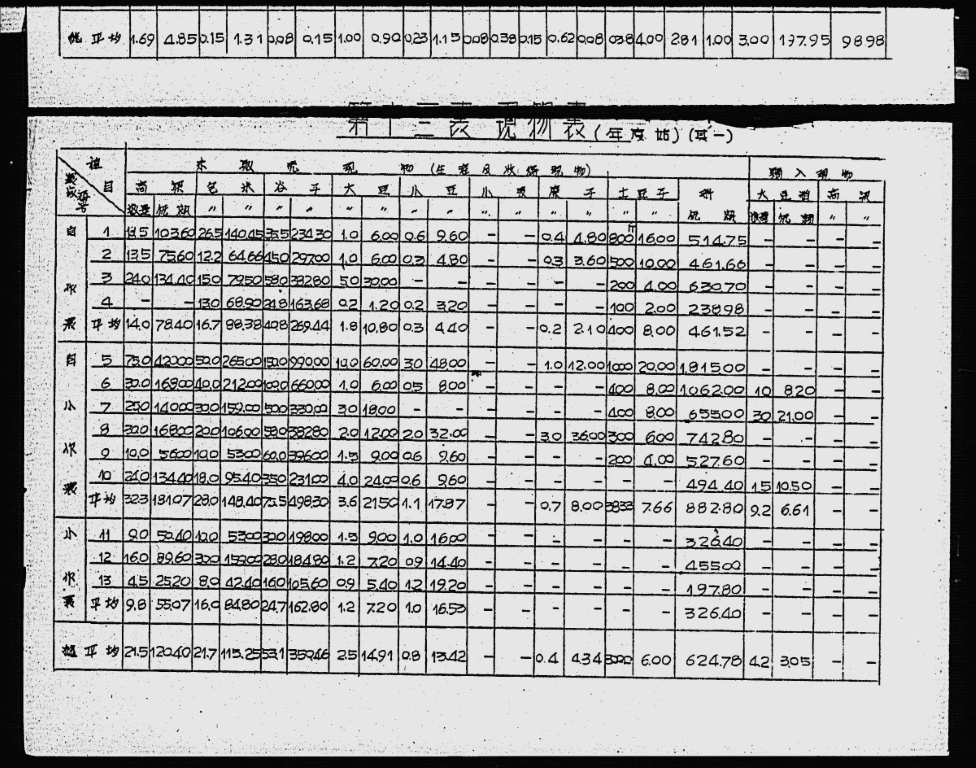 総平均 1.69 4.85 0.15 1.31 0.08 0.15 1.00 0.90 0.23 1.15 0.08 0.38 0.15 0.62 0.08 038 4.00 281 1.00 3.00 197.95 98.98
第十三表 現物表 (年度始) (其一)
種目 農家番号 未販売現物 (生産及収得現物) 購入現物
高粱 包米 谷子 大豆 小豆 小麦 糜子 土豆子 計 大豆油 高粱
数量 価額 〃 〃 〃 〃 〃 〃 〃 〃 〃 〃 〃 〃 〃 〃 価額 数量 価額 〃 〃
自 1 18.5 103.60 26.5 140.45 35.5 234.30 1.0 6.00 0.6 9.60 - - 0.4 4.80 800 16.00 514.75 - - - -
2 13.5 75.60 12.2 64.66 45.0 297.00 1.0 6.00 0.3 4.80 - - 0.3 3.60 500 10.00 461.66 - - - -
3 24.0 134.40 15.0 79.50 58.0 382.80 5.0 30.00 - - - - - - 200 4.00 630.70 - - - -
作 4 - - 13.0 68.90 24.8 163.68 0.2 1.20 0.2 3.20 - - - - 100 2.00 238.98 - - - -
農 平均 14.0 78.40 16.7 88.38 40.8 269.44 1.8 10.80 0.3 4.40 - - 0.2 2.10 400 8.00 461.52 - - - -
自 5 75.0 420.00 50.0 265.00 150.0 990.00 10.0 60.00 3.0 48.00 - - 1.0 12.00 1000 20.00 1,815.00 - - - -
6 30.0 168.00 40.0 212.00 100.0 660.00 1.0 6.00 0.5 8.00 - - - - 400 8.00 1,062.00 1.0 8.20 - -
小 7 25.0 140.00 30.0 159.00 50.0 330.00 3.0 18.00 - - - - - - 400 8.00 655.00 3.0 21.00 - -
8 30.0 168.00 20.0 106.00 58.0 382.80 2.0 12.00 2.0 32.00 - - 3.0 36.00 300 6.00 742.80 - - - -
作 9 10.0 56.00 10.0 53.00 60.0 396.00 1.5 9.00 0.6 9.60 - - - - 200 4.00 527.60 - - - -
10 24.0 134.40 18.0 95.40 35.0 231.00 4.0 24.00 0.6 9.60 - - - - - - 494.40 1.5 10.50 - -
農 平均 32.3 181.07 28.0 148.40 75.5 498.30 3.6 21.50 1.1 17.87 - - 0.7 8.00 383.3 7.66 882.80 9.2 6.61 - -
小 11 9.0 50.40 10.0 53.00 30.0 198.00 1.5 9.00 1.0 16.00 - - - - - - 326.40 - - - -
12 16.0 89.60 30.0 159.00 28.0 184.80 1.2 7.20 0.9 14.40 - - - - - - 455.00 - - - -
作 13 4.5 25.20 8.0 42.40 16.0 105.60 0.9 5.40 1.2 19.20 - - - - - - 197.80 - - - -
農 平均 9.8 55.07 16.0 84.80 24.7 162.80 1.2 7.20 1.0 16.53 - - - - - - 326.40 - - - -
総平均 21.5 120.40 21.7 115.25 53.1 350.46 2.5 14.91 0.8 13.42 - - 0.4 4.34 300.0 6.00 624.78 4.2 3.05 - -